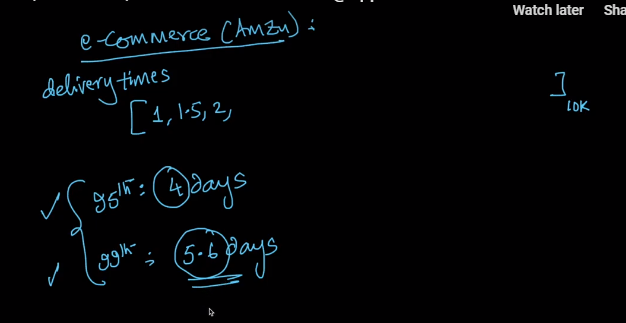 Watch later Sha
e-commerce (Amzn):
delivery times
[1, 1.5, 2, ]10K
95th: 4 days
99th: 5.6 days